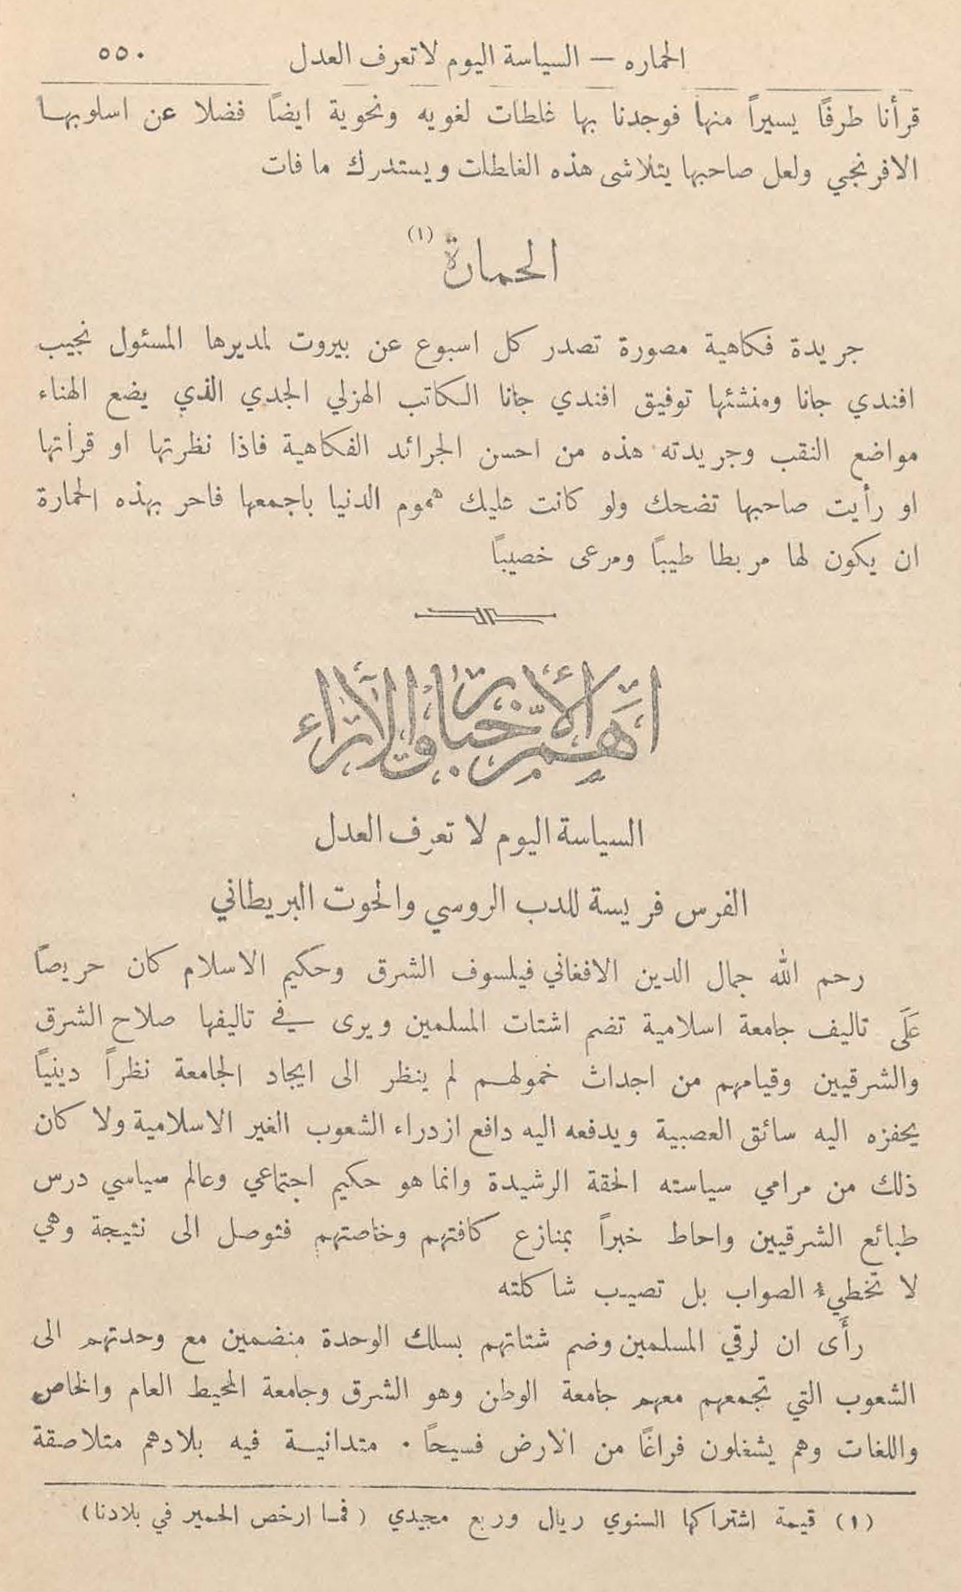 الحماره — السياسة اليوم لا تعرف العدل ٥٥٠
قرأنا طرفًا يسيراً منها فوجدنا بها غلطات لغويه ونحوية ايضاً فضلا عن اسلوبها
الافرنجي ولعل صاحبها يتلاشى هذه الغلطات ويستدرك ما فات
الحمارة (١)
جريدة فكاهية مصورة تصدر كل اسبوع عن بيروت لمديرها المسئول نجيب
افندي جانا ومنشئها توفيق افندي جانا الكاتب الهزلي الجدي الذي يضع الهناء
مواضع النقب وجريدته هذه من احسن الجرائد الفكاهية فاذا نظرتها او قرأتها
او رأيت صاحبها تضحك ولو كانت عليك هموم الدنيا باجمعها فاحر بهذه الحمارة
ان يكون لها مربطا طيباً ومرعى خصيباً
اهم الأخبار والآراء
السياسة اليوم لا تعرف العدل
الفرس فريسة للدب الروسي والحوت البريطاني
رحم الله جمال الدين الافغاني فيلسوف الشرق وحكيم الاسلام كان حريصاً
عَلَى تاليف جامعة اسلامية تضم اشتات المسلمين ويرى في تاليفها صلاح الشرق
والشرقيين وقيامهم من اجداث خمولهم لم ينظر الى ايجاد الجامعة نظراً دينياً
يحفزه اليه سائق العصبية ويدفعه اليه دافع ازدراء الشعوب الغير الاسلامية ولا كان
ذلك من مرامي سياسته الحقة الرشيدة وانما هو حكيم اجتماعي وعالم سياسي درس
طبائع الشرقيين واحاط خبراً بمنازع كافتهم وخاصتهم فتوصل الى نتيجة وهي
لا تخطيء الصواب بل تصيب شاكلته
رأَى ان لرقي المسلمين وضم شتاتهم بسلك الوحدة منضمين مع وحدتهم الى
الشعوب التي تجمعهم معهم جامعة الوطن وهو الشرق وجامعة المحيط العام والخاص
واللغات وهم يشغلون فراغًا من الارض فسيحاً . متدانية فيه بلادهم متلاصقة
(١) قيمة اشتراكها السنوي ريال وربع مجيدي (فما ارخص الحمير في بلادنا)